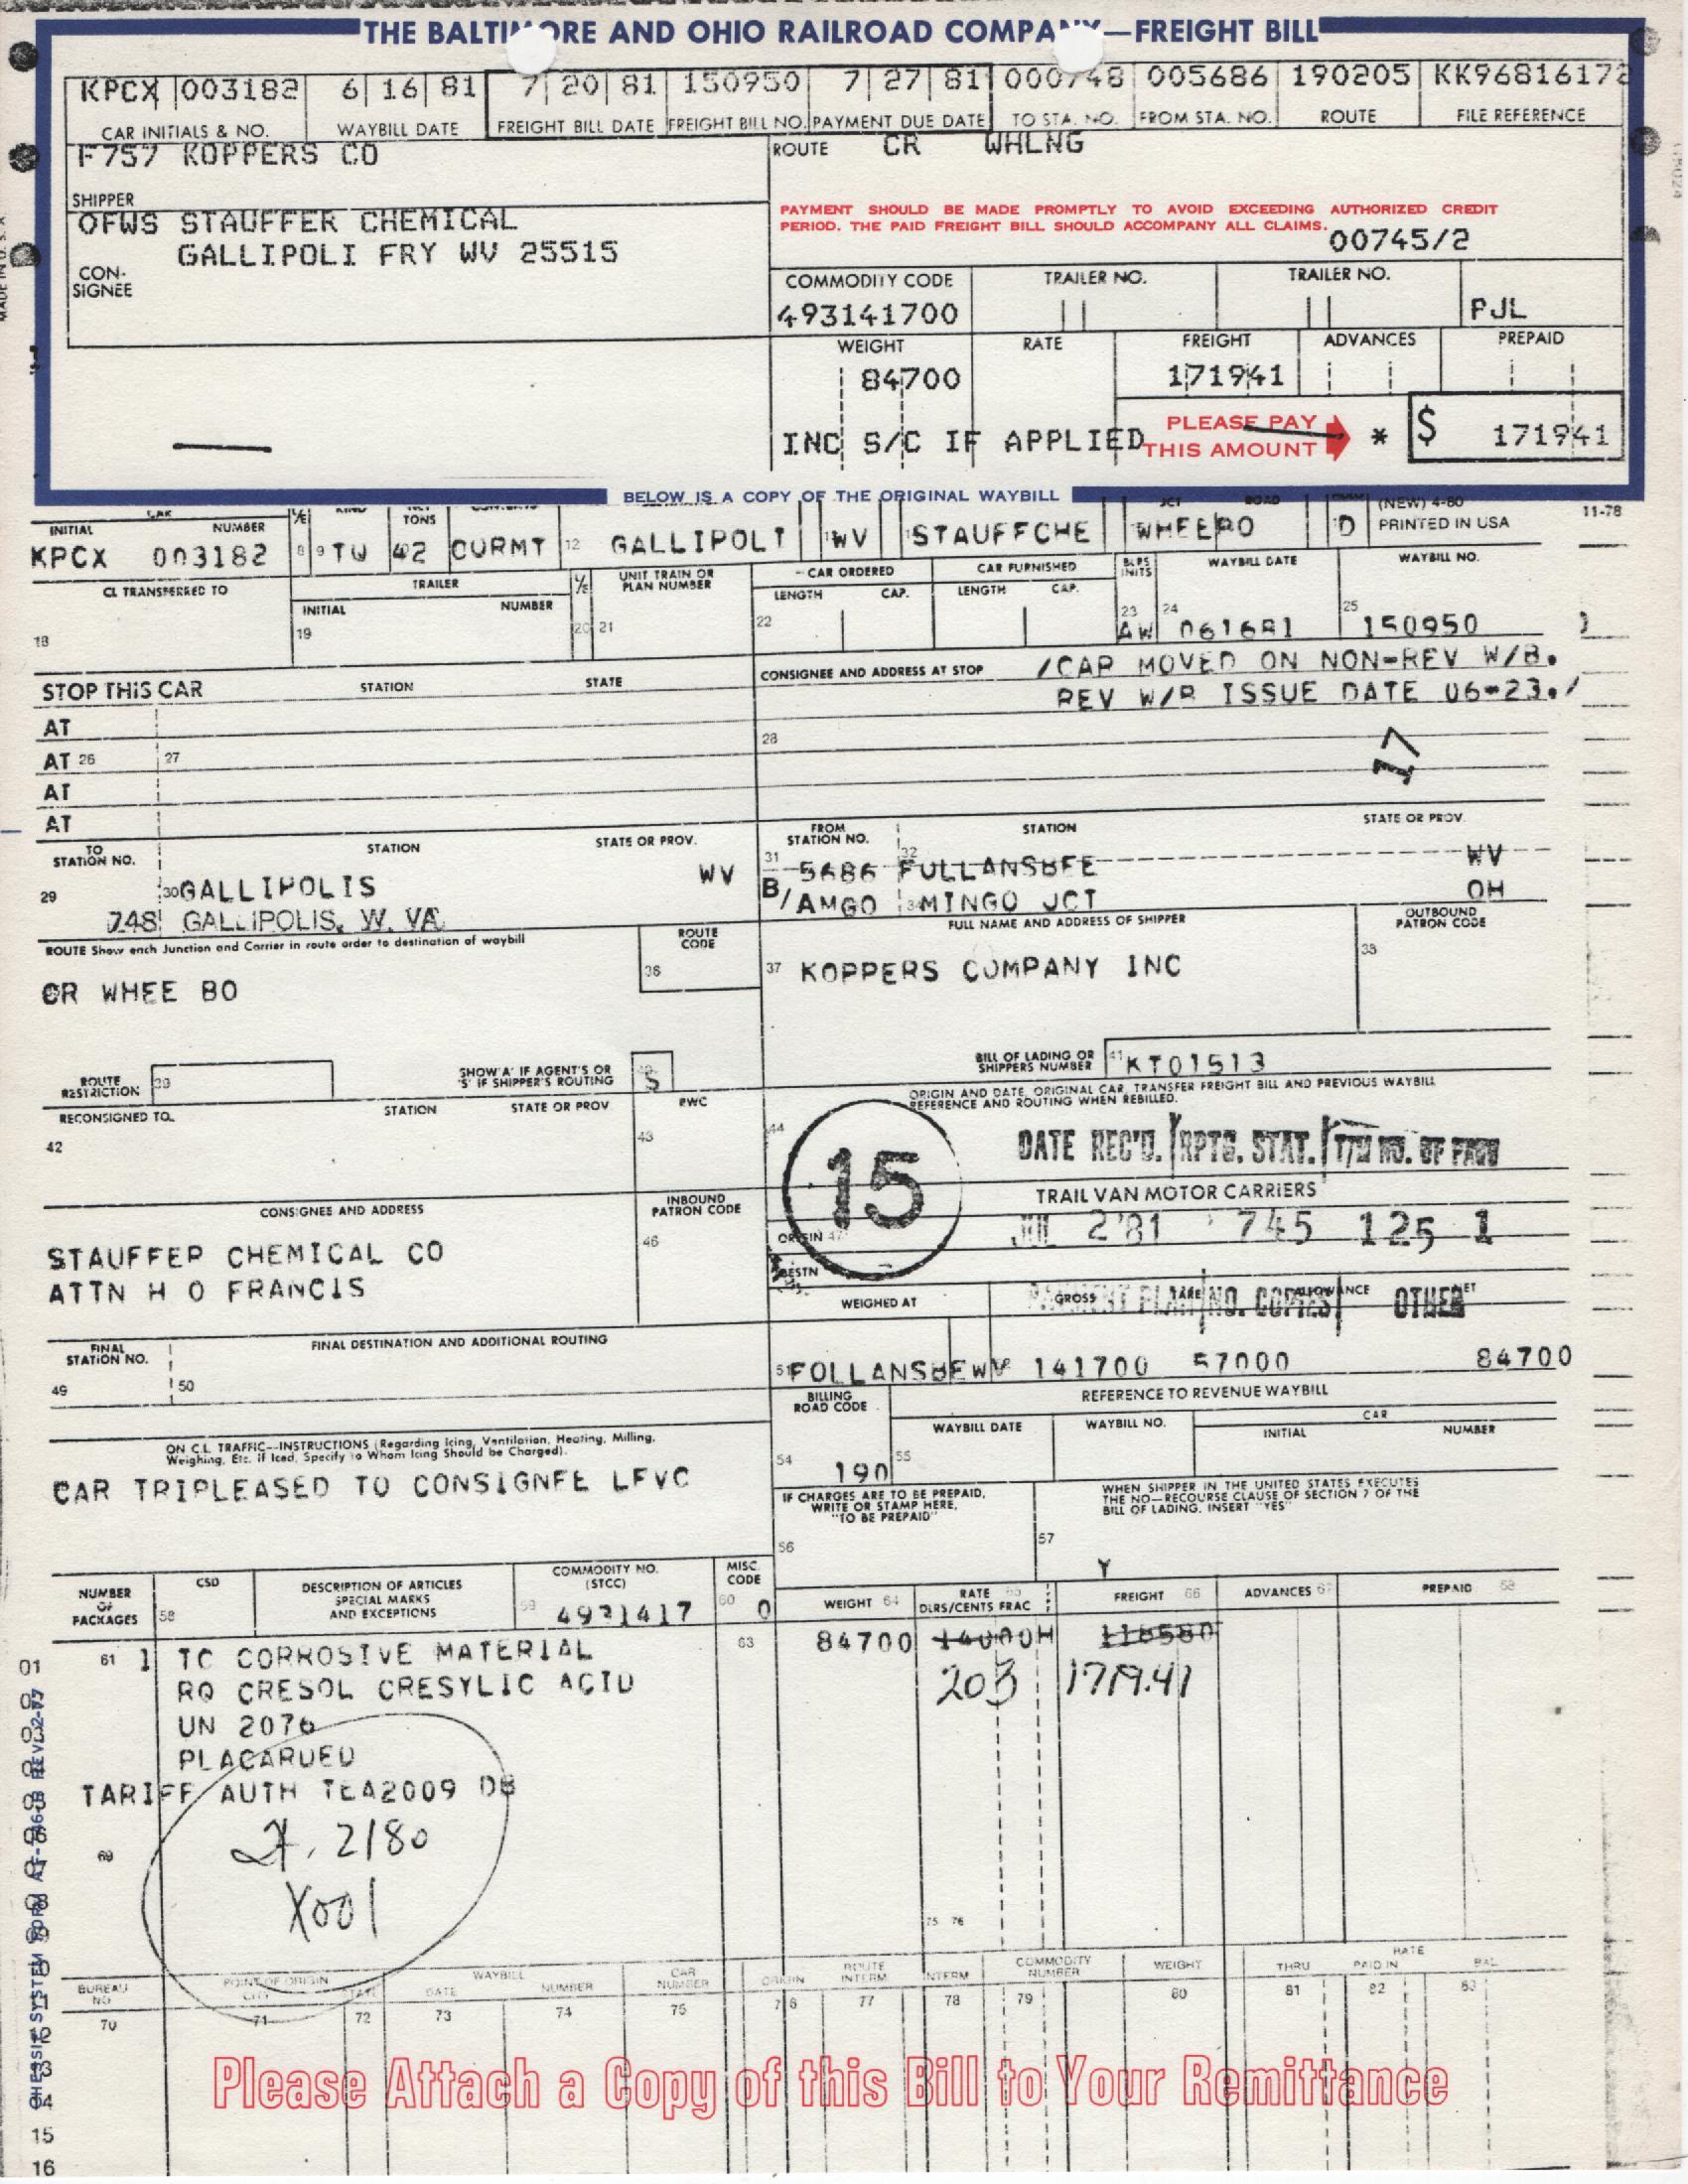 THE BALTIMORE AND OHIO RAILROAD COMPANY—FREIGHT BILL
KPCX 003182 6 16 81 7 20 81 150950 7 27 81 000748 005686 190205 KK96816172
CAR INITIALS & NO. WAYBILL DATE FREIGHT BILL DATE FREIGHT BILL NO. PAYMENT DUE DATE TO STA. NO. FROM STA. NO. ROUTE FILE REFERENCE
F757 KOPPERS CO
ROUTE CR WHLNG
SHIPPER
OFWS STAUFFER CHEMICAL
GALLIPOLI FRY WV 25515
CON-
SIGNEE
PAYMENT SHOULD BE MADE PROMPTLY TO AVOID EXCEEDING AUTHORIZED CREDIT
PERIOD. THE PAID FREIGHT BILL SHOULD ACCOMPANY ALL CLAIMS.
00745/2
COMMODITY CODE TRAILER NO. TRAILER NO.
493141700 PJL
WEIGHT RATE FREIGHT ADVANCES PREPAID
84700 171941
INC S/C IF APPLIED PLEASE PAY
THIS AMOUNT * $ 171941
BELOW IS A COPY OF THE ORIGINAL WAYBILL
CAR L/E KIND TONS JCT ROAD (NEW) 4-80 11-78
INITIAL NUMBER PRINTED IN USA
KPCX 003182 8 9 TW 42 CORMT 12 GALLIPOLT WV STAUFFCHE WHEEPO D
CL TRANSFERRED TO TRAILER L/E UNIT TRAIN OR
PLAN NUMBER CAR ORDERED CAR FURNISHED WAYBILL DATE WAYBILL NO.
INITIAL NUMBER LENGTH CAP. LENGTH CAP.
18 19 20 21 22 23 AW 24 061681 25 150950
STOP THIS CAR STATION STATE CONSIGNEE AND ADDRESS AT STOP
/CAR MOVED ON NON-REV W/B.
REV W/B ISSUE DATE 06-23./
AT
AT 26 27 28
AT
AT
17
TO
STATION NO. STATION STATE OR PROV.
FROM
STATION NO. STATION STATE OR PROV.
29 30 GALLIPOLIS WV
748 GALLIPOLIS, W. VA.
31 5686 32 FOLLANSBEE WV
B/AMGO MINGO JCT OH
ROUTE Show each Junction and Carrier in route order to destination of waybill
ROUTE
CODE
36
CR WHEE BO
FULL NAME AND ADDRESS OF SHIPPER OUTBOUND
PATRON CODE
37 KOPPERS COMPANY INC 38
ROUTE
RESTRICTION 39
SHOW 'A' IF AGENT'S OR
'S' IF SHIPPER'S ROUTING
S
BILL OF LADING OR
SHIPPERS NUMBER 41 KT01513
RECONSIGNED TO STATION STATE OR PROV PWC
42 43
ORIGIN AND DATE, ORIGINAL CAR, TRANSFER FREIGHT BILL AND PREVIOUS WAYBILL
REFERENCE AND ROUTING WHEN REBILLED.
44
15
DATE REC'D. RPTG. STAT.
TRAIL VAN MOTOR CARRIERS
ORIGIN 47
JUL 2 '81 745 125 1
DESTN
CONSIGNEE AND ADDRESS INBOUND
PATRON CODE
46
STAUFFER CHEMICAL CO
ATTN H O FRANCIS
WEIGHED AT GROSS TARE ALLOWANCE NET
NO. COPIES OTHER
FINAL
STATION NO. FINAL DESTINATION AND ADDITIONAL ROUTING
49 50
FOLLANSBEWV 141700 57000 84700
BILLING
ROAD CODE REFERENCE TO REVENUE WAYBILL
WAYBILL DATE WAYBILL NO. CAR
INITIAL NUMBER
54 190 55
ON C.L. TRAFFIC—INSTRUCTIONS (Regarding Icing, Ventilation, Heating, Milling,
Weighing, Etc. If Iced, Specify to Whom Icing Should be Charged).
CAR TRIPLEASED TO CONSIGNEE LFVC
IF CHARGES ARE TO BE PREPAID,
WRITE OR STAMP HERE,
"TO BE PREPAID"
56
WHEN SHIPPER IN THE UNITED STATES EXECUTES
THE NO—RECOURSE CLAUSE OF SECTION 7 OF THE
BILL OF LADING, INSERT "YES"
57 Y
NUMBER
OF
PACKAGES
CSD
58
DESCRIPTION OF ARTICLES
SPECIAL MARKS
AND EXCEPTIONS
COMMODITY NO.
(STCC)
59 4931417
MISC.
CODE
60 0
WEIGHT 64 RATE 65
DLRS/CENTS FRAC FREIGHT 66 ADVANCES 67 PREPAID 68
01 61 1 TC CORROSIVE MATERIAL 63 84700 14000H 118580
RQ CRESOL CRESYLIC ACID 203 1719.41
UN 2076
PLACARDED
TARIFF AUTH TEA2009 DB
2180
69
X001
75 76
BUREAU
NO. POINT OF ORIGIN
CITY STATE WAYBILL
DATE NUMBER CAR
NUMBER ORIGIN ROUTE
INTERM INTERM COMMODITY
NUMBER WEIGHT RATE
THRU PAID IN BAL
70 71 72 73 74 75 76 77 78 79 80 81 82 83
Please Attach a Copy of this Bill to Your Remittance
15
16
MADE IN U.S.A.
CHESSIE SYSTEM FORM